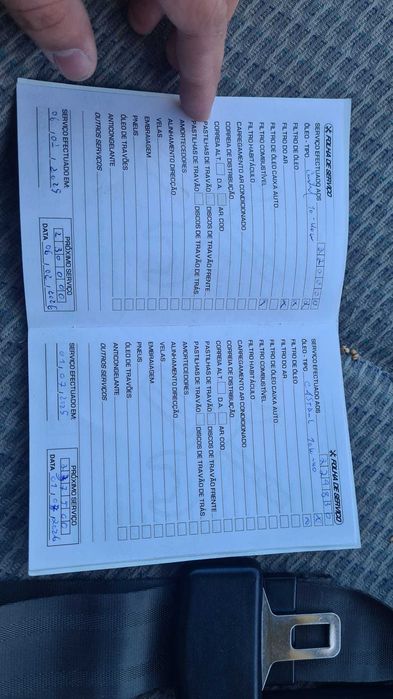 FOLHA DE SERVIÇO
SERVIÇO EFECTUADO AOS
ÓLEO - TIPO 10-40W
FILTRO DE ÓLEO
FILTRO DO AR
FILTRO DE ÓLEO CAIXA AUTO
FILTRO COMBUSTÍVEL
FILTRO HABITÁCULO
CARREGAMENTO AR CONDICIONADO
CORREIA DE DISTRIBUIÇÃO
CORREIA ALT. D.A. AR. COD
PASTILHAS DE TRAVÃO DISCOS DE TRAVÃO FRENTE
PASTILHAS DE TRAVÃO DISCOS DE TRAVÃO DE TRÁS
AMORTECEDORES
ALINHAMENTO DIRECÇÃO
VELAS
EMBRAIAGEM
PNEUS
ÓLEO DE TRAVÕES
ANTICONGELANTE
OUTROS SERVIÇOS
SERVIÇO EFECTUADO EM: PRÓXIMO SERVIÇO
230000
DATA 06,02,2026
FOLHA DE SERVIÇO
SERVIÇO EFECTUADO AOS
ÓLEO - TIPO
FILTRO DE ÓLEO
FILTRO DO AR
FILTRO DE ÓLEO CAIXA AUTO
FILTRO COMBUSTÍVEL
FILTRO HABITÁCULO
CARREGAMENTO AR CONDICIONADO
CORREIA DE DISTRIBUIÇÃO
CORREIA ALT. D.A. AR. COD
PASTILHAS DE TRAVÃO DISCOS DE TRAVÃO FRENTE
PASTILHAS DE TRAVÃO DISCOS DE TRAVÃO DE TRÁS
AMORTECEDORES
ALINHAMENTO DIRECÇÃO
VELAS
EMBRAIAGEM
PNEUS
ÓLEO DE TRAVÕES
ANTICONGELANTE
OUTROS SERVIÇOS
SERVIÇO EFECTUADO EM: PRÓXIMO SERVIÇO
DATA